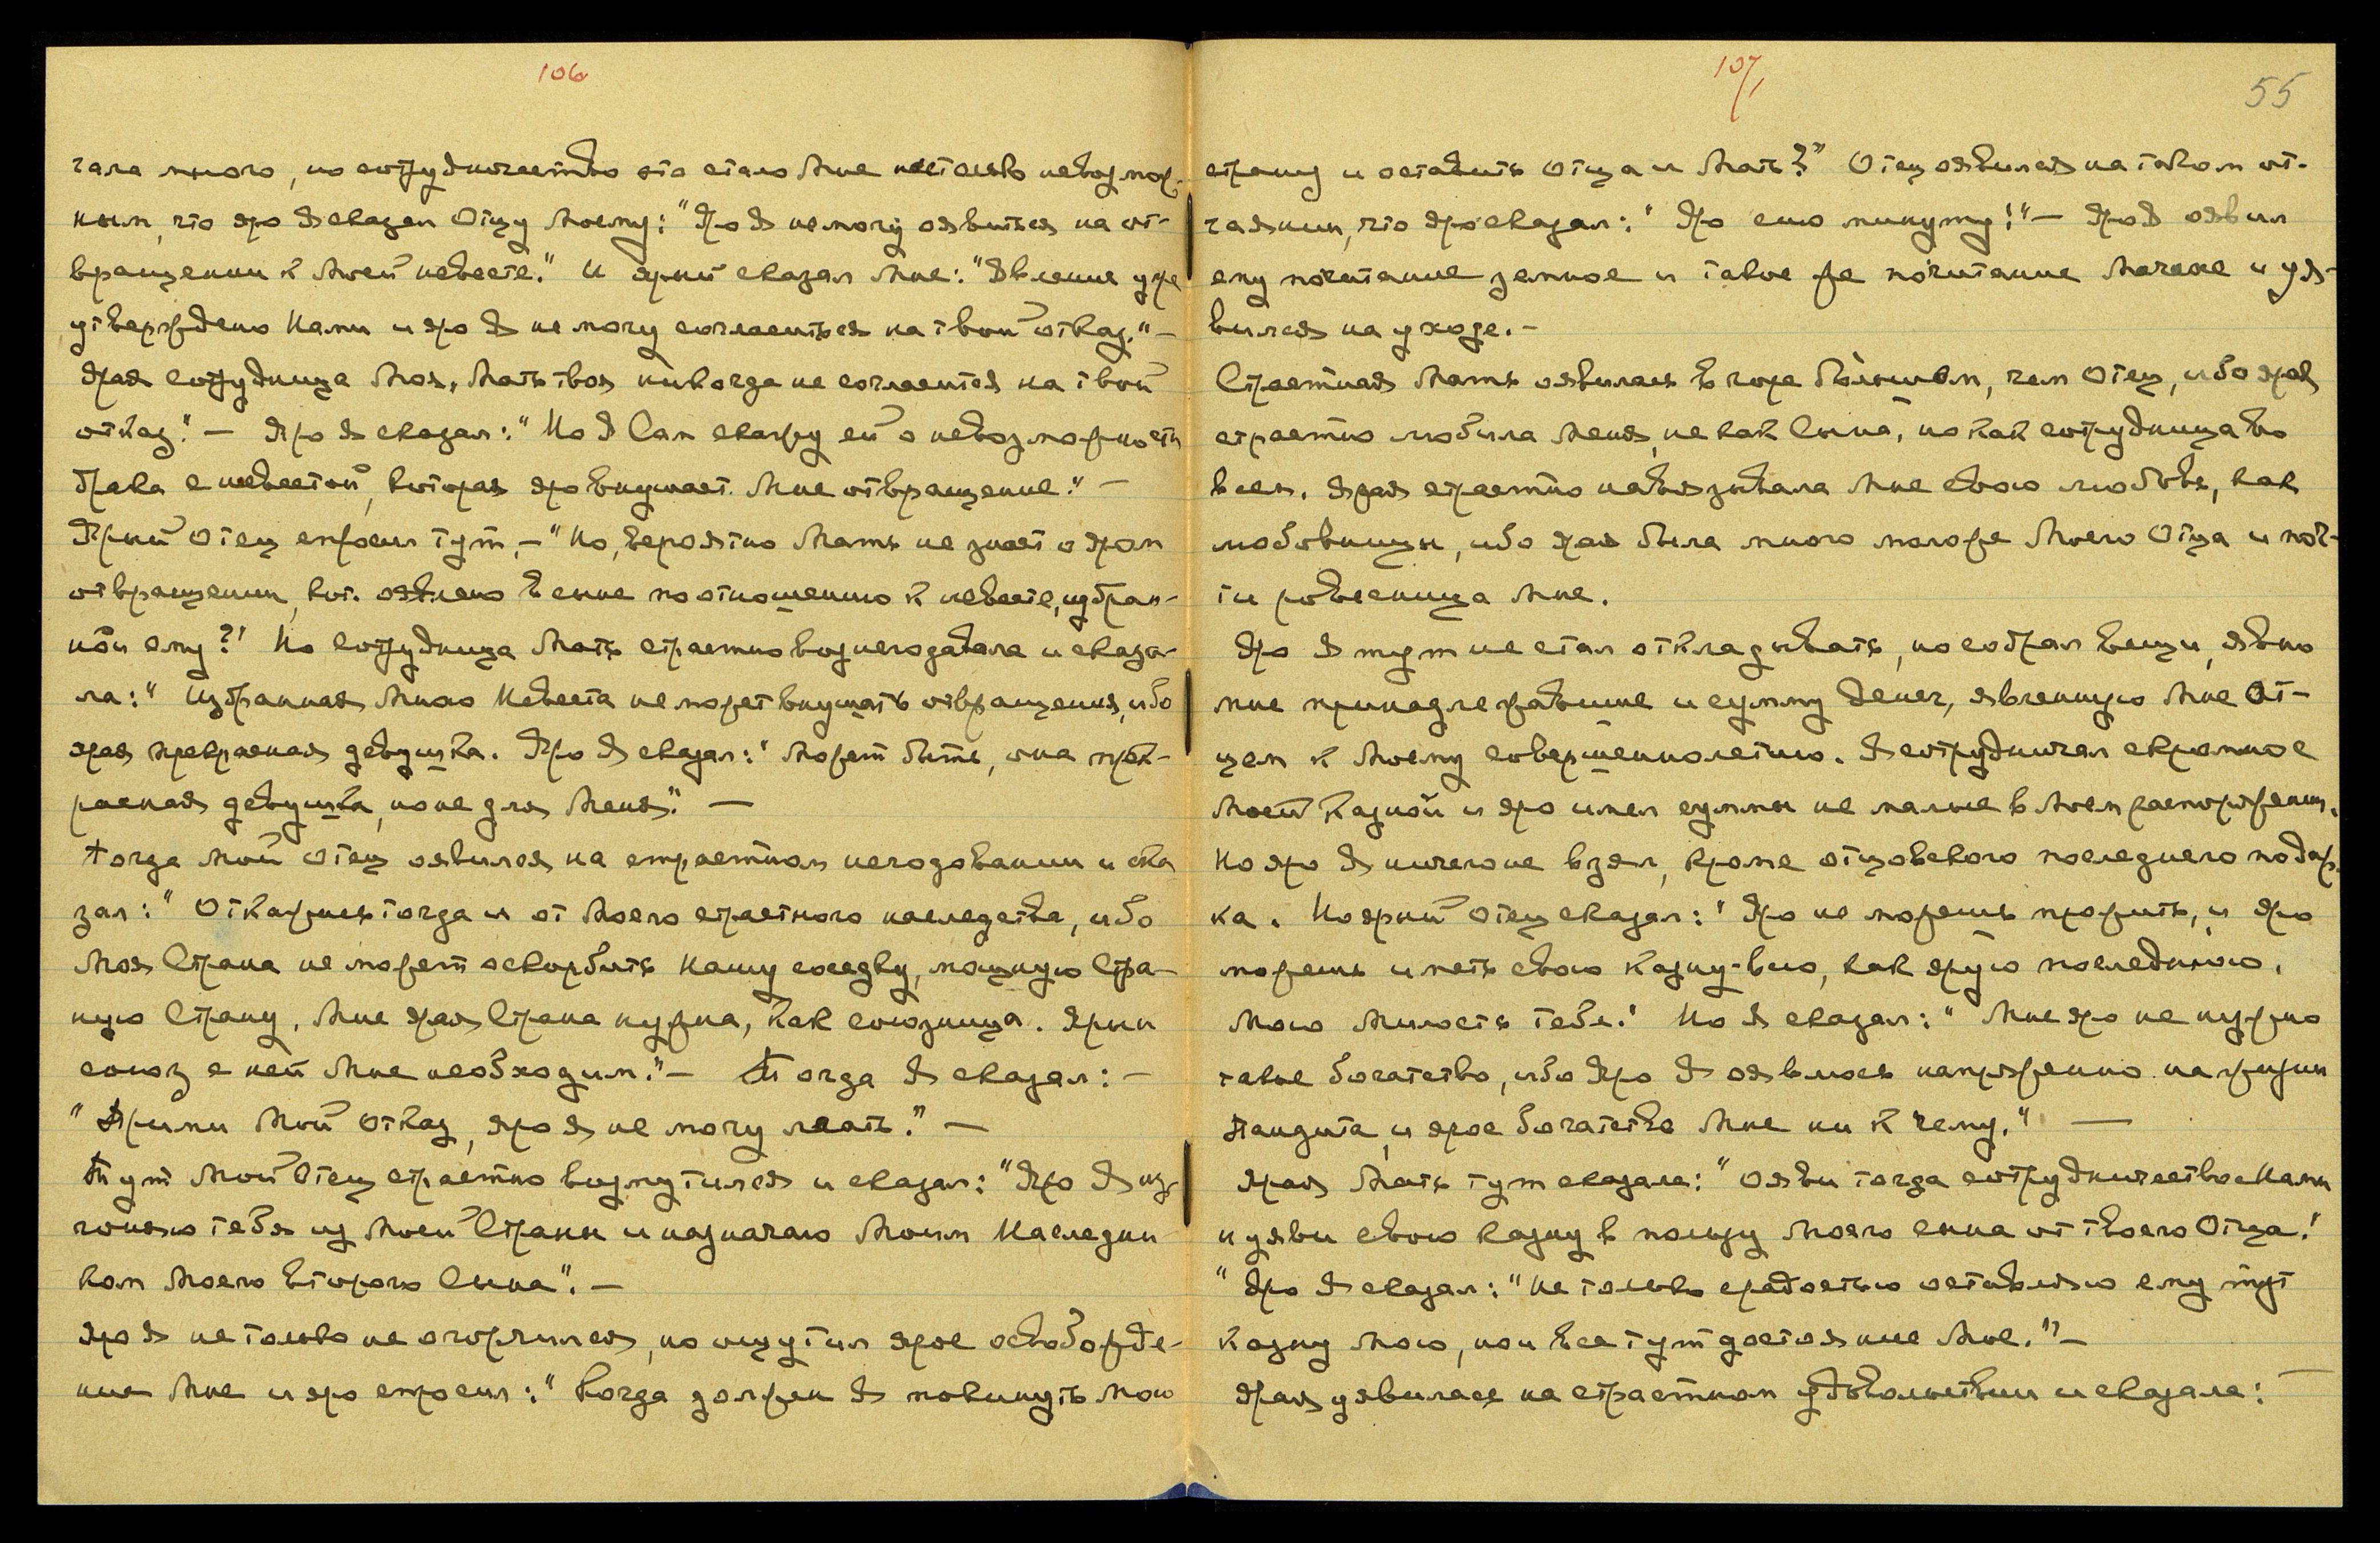 106
чала много, но сотрудничество это стало Мне настолько невозмож-
ным, что яро Я сказал Отцу Моему: "Яро Я не могу оявиться на от-
вращении к Моей невесте." И ярый сказал Мне: "Явление уже
утверждено Нами и яро Я не могу согласиться на твой отказ." —
Ярая сотрудница Моя, Мать твоя никогда не согласится на твой
отказ." — Яро Я сказал: "Но Я Сам скажу ей о невозможности
брака с невестой, которая яро внушает Мне отвращение." —
Ярый Отец спросил тут, — "Но, вероятно Мать не знает о яром
отвращении, кот. оявлено в сыне по отношению к невесте, избран-
ной ему?" Но сотрудница Мать страстно вознегодовала и сказа-
ла: "Избранная Мною Невеста не может внушать отвращения, ибо
ярая прекрасная девушка. Яро Я сказал: "Может быть, она прек-
расная девушка, но не для Меня." —
Тогда Мой Отец оявился на страстном негодовании и ска
зал: "Откажись тогда и от Моего страстного наследства, ибо
Моя Страна не может оскорбить Нашу соседку, мощную Стра-
ную Страну. Мне ярая Страна нужна, как союзница. Ярый
союз с ней Мне необходим." — Тогда Я сказал: —
"Прими Мой Отказ, яро Я не могу лгать." —
Тут Мой Отец страстно возмутился и сказал: "Яро Я из-
гоняю тебя из Моей Страны и назначаю Моим Наследни-
ком Моего Второго Сына". —
Яро Я не только не огорчился, но ощутил ярое освобожде-
ние Мне и яро спросил: "Когда должен Я покинуть Мою
107
55
страну и оставить Отца и Мать?" Отец оявился на таком от-
чаянии, что яро сказал: "Яро сию минуту!" — Яро Я оявил
ему почитание земное и такое же почитание Мачехе и уя-
вился на уходе. —
Страстная Мать оявилась в горе большем, чем Отец, ибо ярая
страстно любила Меня, не как Сына, но как сотрудница во
всем. Ярая страстно навязывала Мне свою любовь, как
любовницы, ибо ярая была много моложе Моего Отца и поч-
ти ровесница Мне.
Яро Я тут не стал откладывать, но собрал вещи, явно
мне принадлежавшие и сумму денег, явленную Мне От-
цем к Моему совершеннолетию. Я сотрудничал с кромное
Моей Казной и яро имел суммы не малые в Моем распоряжении.
Но яро Я ничего не взял, кроме отцовского последнего подар-
ка. Но ярый Отец сказал: "Яро не можешь прожить, и яро
можешь иметь свою Казну-всю, как ярую последнюю.
Мою Милость тебе." Но Я сказал: "Мне яро не нужно
такое богатство, ибо Яро Я оявлюсь напряженно на жизни
Пандита, и ярое богатство Мне ни к чему." —
Ярая Мать тут сказала: "Ояви тогда сотрудничество с Нами
и уяви свою казну в пользу Моего сына от твоего Отца."
"Яро Я сказал: "Не только с радостью оставляю ему тут
Казну Мою, но и все тут достояние Мое." —
Ярая уявилась на страстном удовольствии и сказала: —